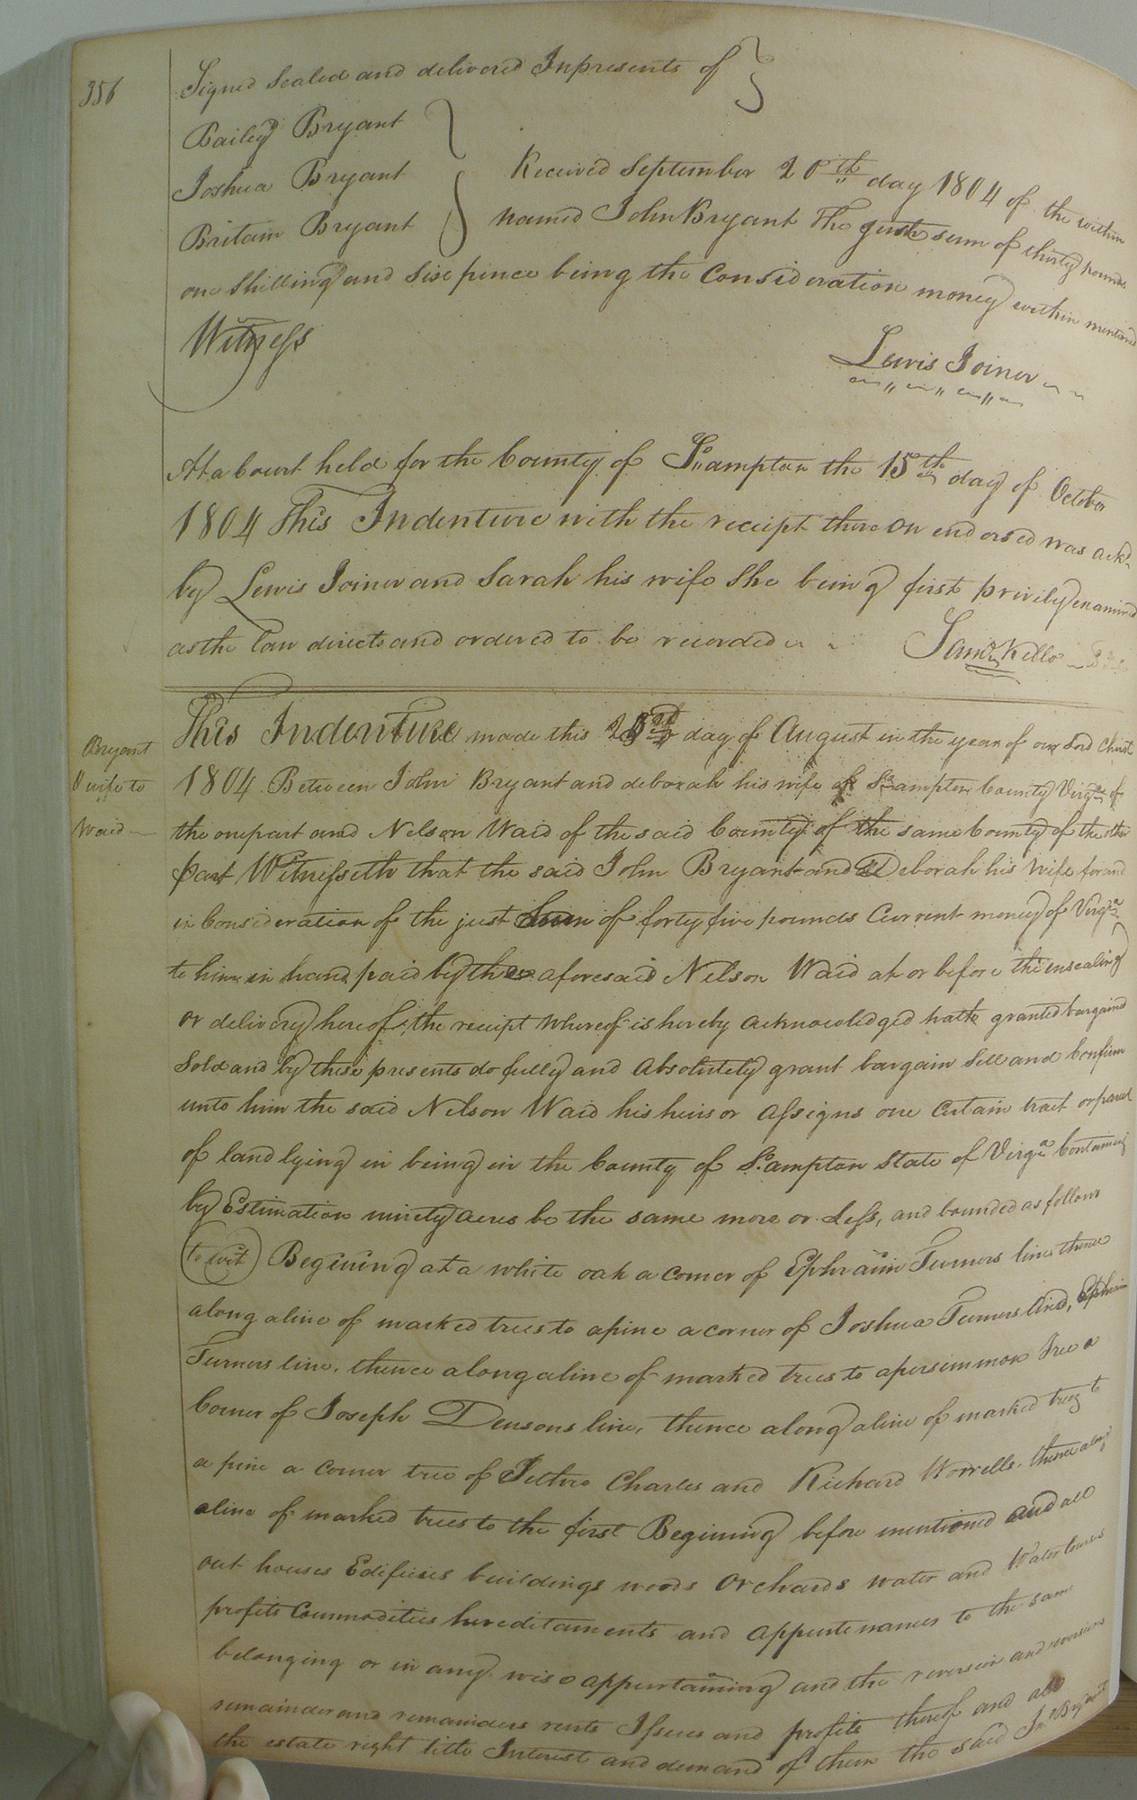 356
Signed Sealed and delivered Inpresents of
Bailey Bryant
Joshua Bryant
Britain Bryant
Received September 20th day 1804 of the within
named John Bryant The just sum of thirty pounds
one Shilling and Six pence being the Consideration money within mentioned
Witness
Lewis Joiner
At a Court held for the County of So.ampton the 15th day of October
1804 This Indenture with the receipt there on endorsed was ackd.
by Lewis Joiner and Sarah his wife She being first privily examined
as the Law directs and ordered to be recorded
Saml. Kello
Bryant
& wife to
Waid
This Indenture made this 23rd day of August in the year of our Lord Christ
1804 Between John Bryant and deborah his wife of So.ampton County Virga. of
the onepart and Nelson Waid of the said County of the same County of the other
part Witnesseth that the said John Bryant and Deborah his Wife for and
in Consideration of the just Sum of forty five pounds Current money of Virga.
to him in hand paid by the aforesaid Nelson Waid at or before the ensealing
or delivery hereof, the receipt whereof is hereby acknowledged hath granted bargained
Sold and by these presents do fully and absolutely grant bargain Sell and Confirm
unto him the said Nelson Waid his heirs or assigns one certain tract or parcel
of land lying in being in the County of So.ampton State of Virga. Containing
by Estimation ninety acres be the same more or Less, and bounded as follows
to wit Begining at a white oak a corner of Ephraim Turners line thence
along a line of marked trees to a pine a corner of Joshua Turners And, Ephraim
Turners line, thence along a line of marked trees to a persimmon Tree a
Corner of Joseph Densons line, thence along a line of marked trees to
a pine a corner tree of Jethro Charles and Richard Worrells thence along
a line of marked trees to the first Begining before mentioned and all
out houses Edifices buildings woods Orchards water and Water Courses
profits Commodities hereditaments and appurtenances to the same
belonging or in any wise appurtaining and the reversion and reversions
remainder and remainders rents Issues and profits thereof and all
the estate right title Interest and demand of them the said Jno. Bryant